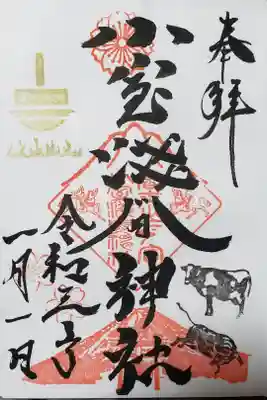 奉拝
小室浅間神社
令和三年
一月一日